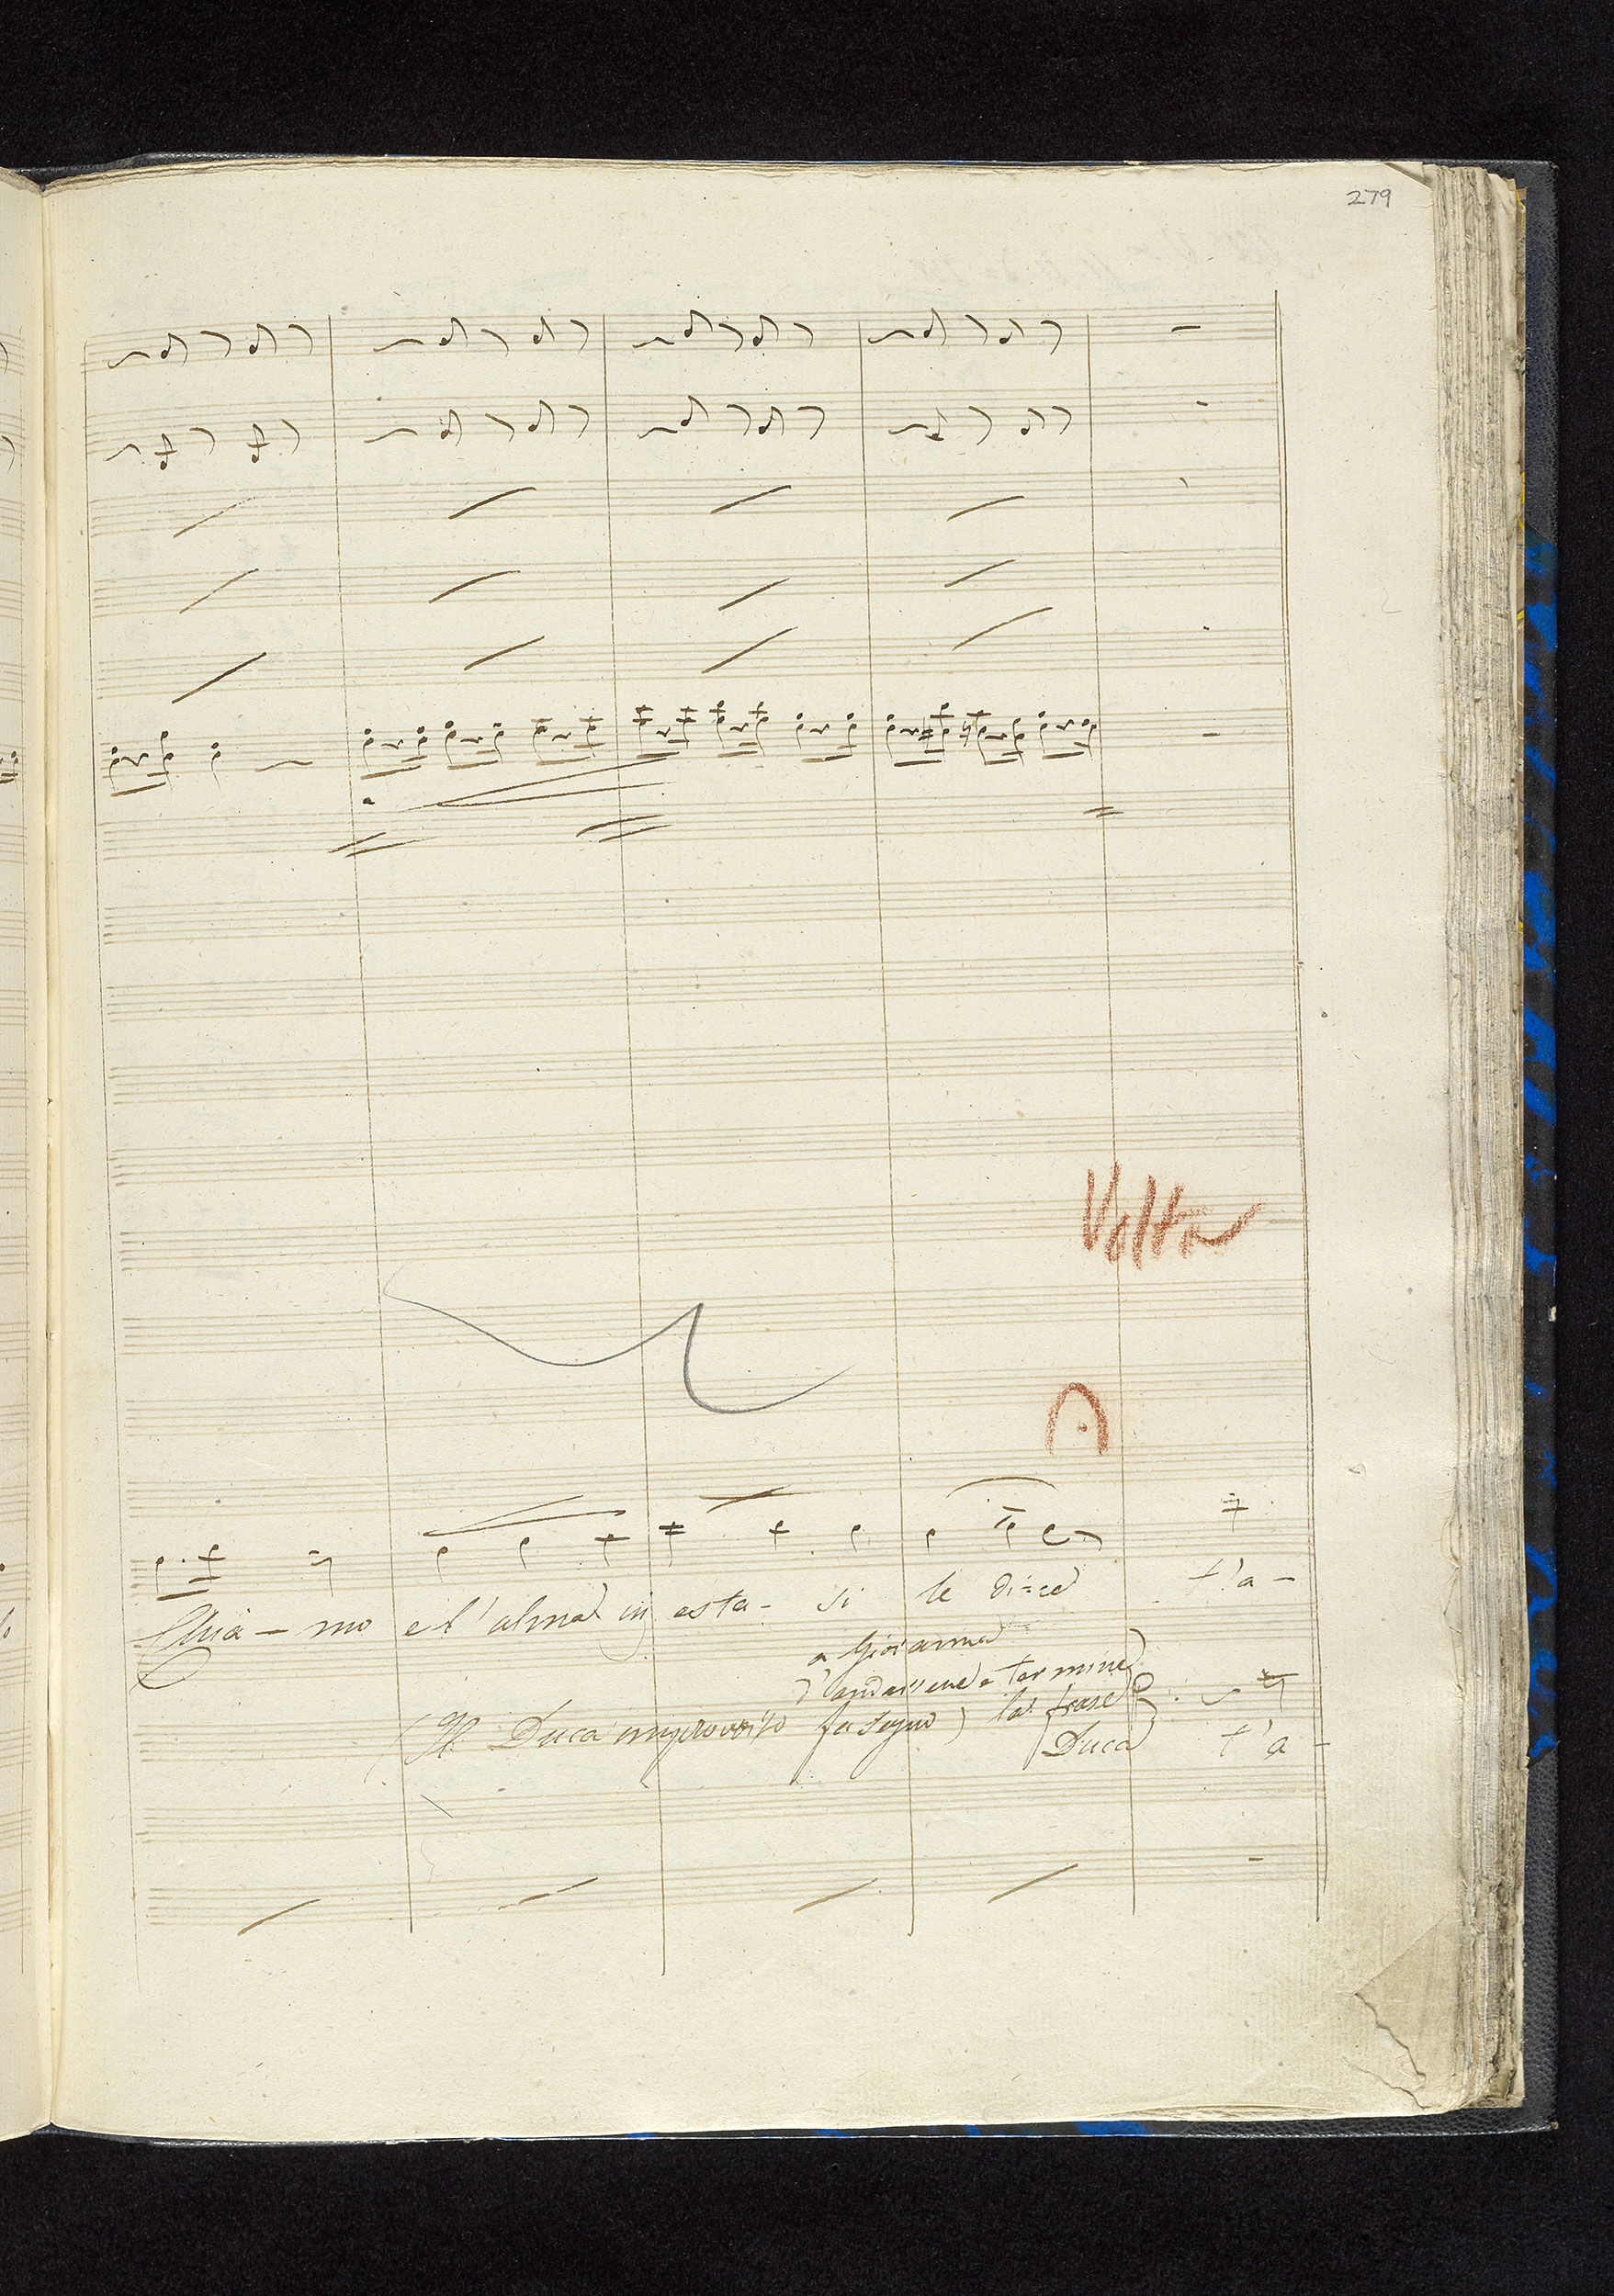 279
Volta
Chia - mo e l'alma in esta - si le dice t'a -
a Giovanna
d'andarsene e termina
(Il Duca improvviso fa segno) la frase
Duca t'a -